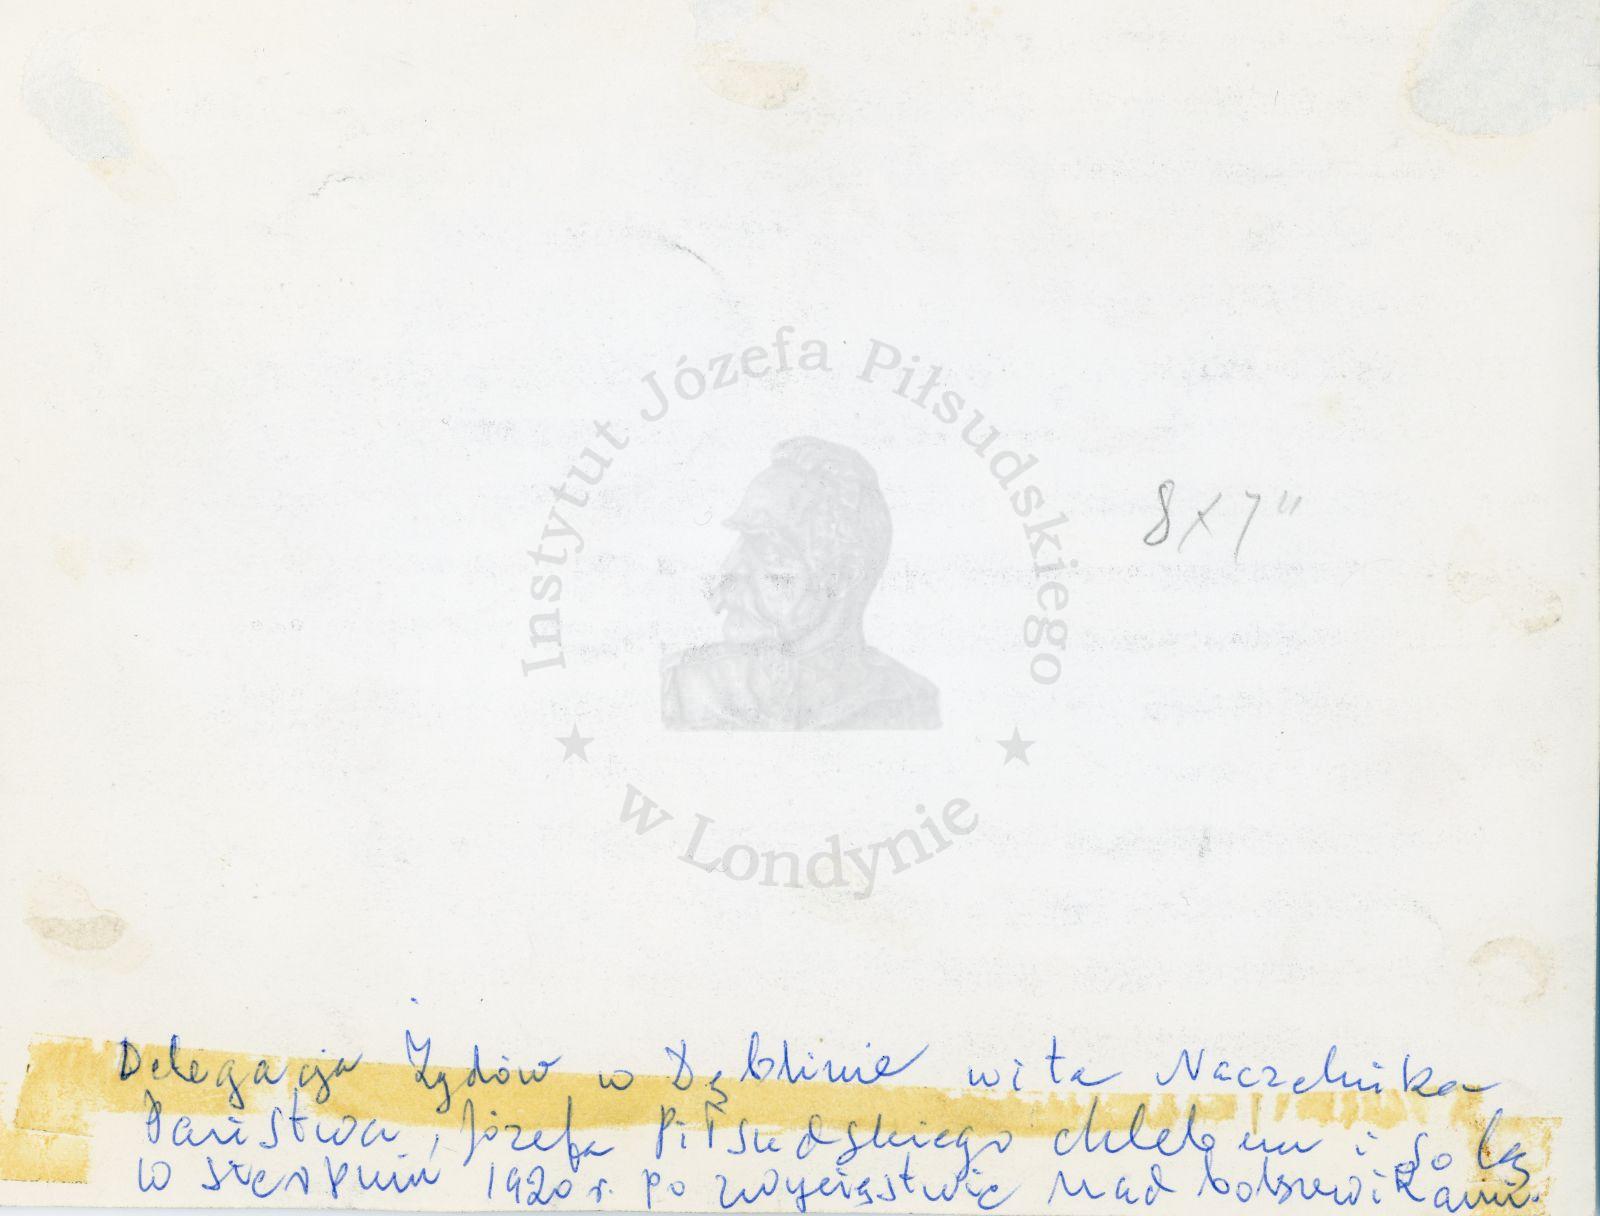 Instytut Józefa Piłsudskiego
w Londynie
8 x 7"
Delegacja Żydów w Dęblinie wita Naczelnika
Państwa, Józefa Piłsudskiego chlebem i solą
w sierpniu 1920 r. po zwycięstwie nad bolszewikami.